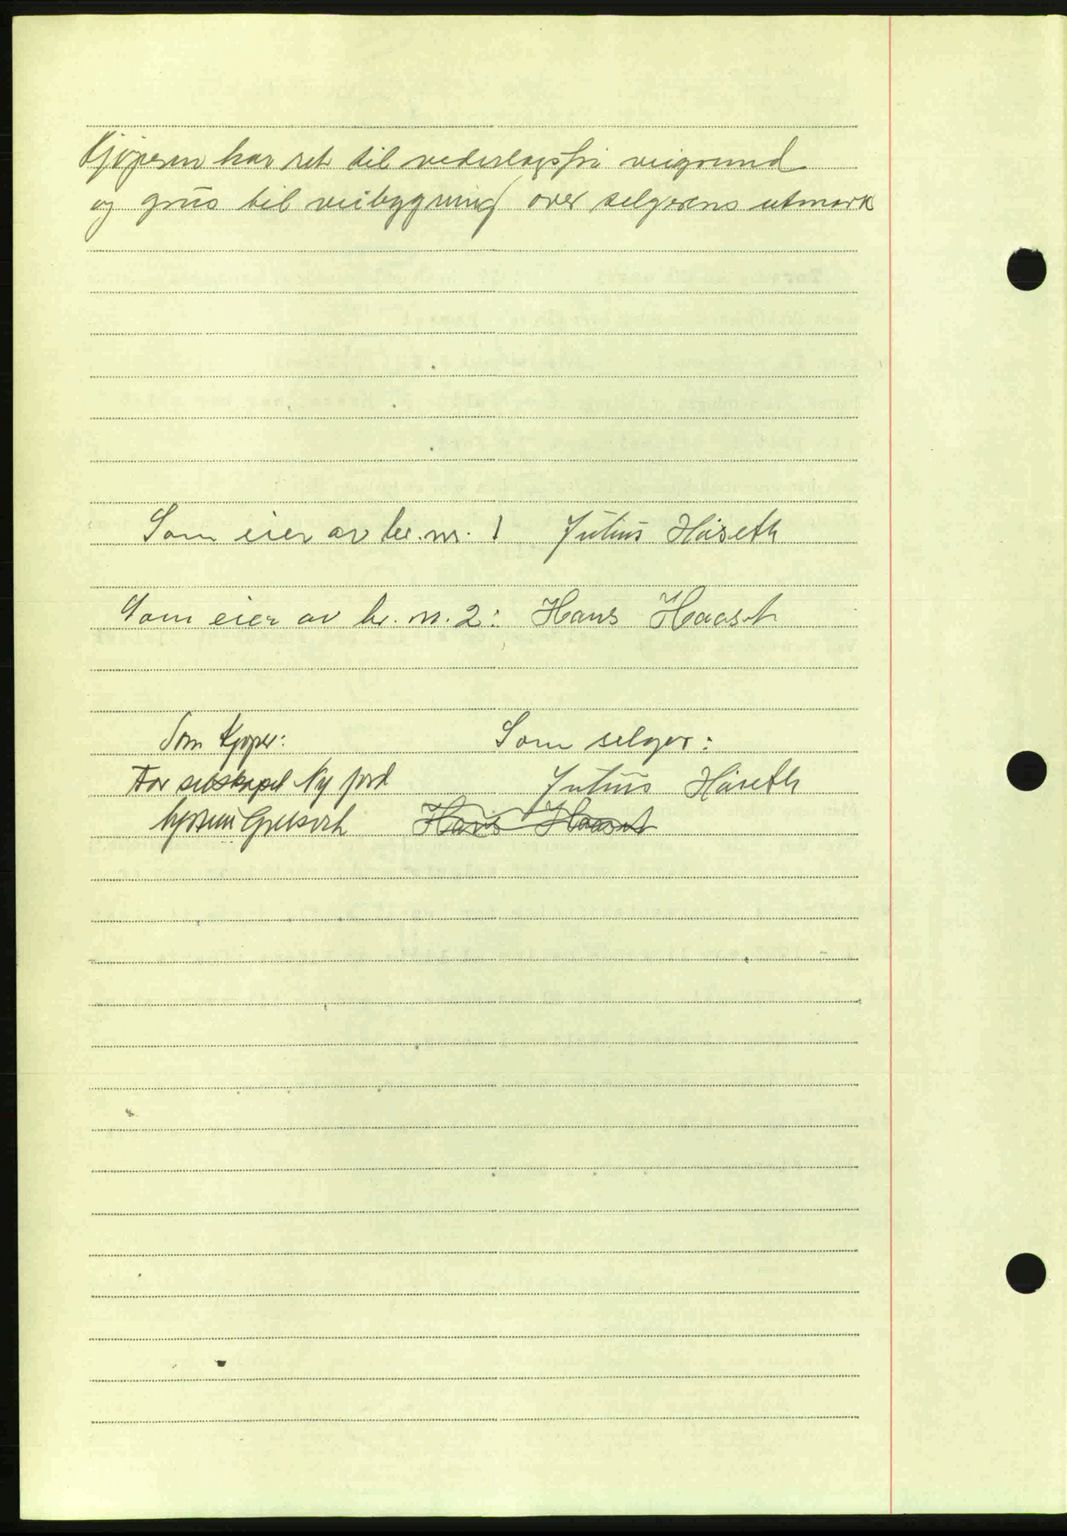 Kjøperen har ret til vederlagsfri veigrund
og grus til veibygning over selgerens utmark
Som eier av br.nr. 1 Julius Håseth
Som eier av br. nr. 2: Hans Haaset
Som kjøper: Som selger:
For selskapet Ny jord Julius Håseth
Hans Haaset